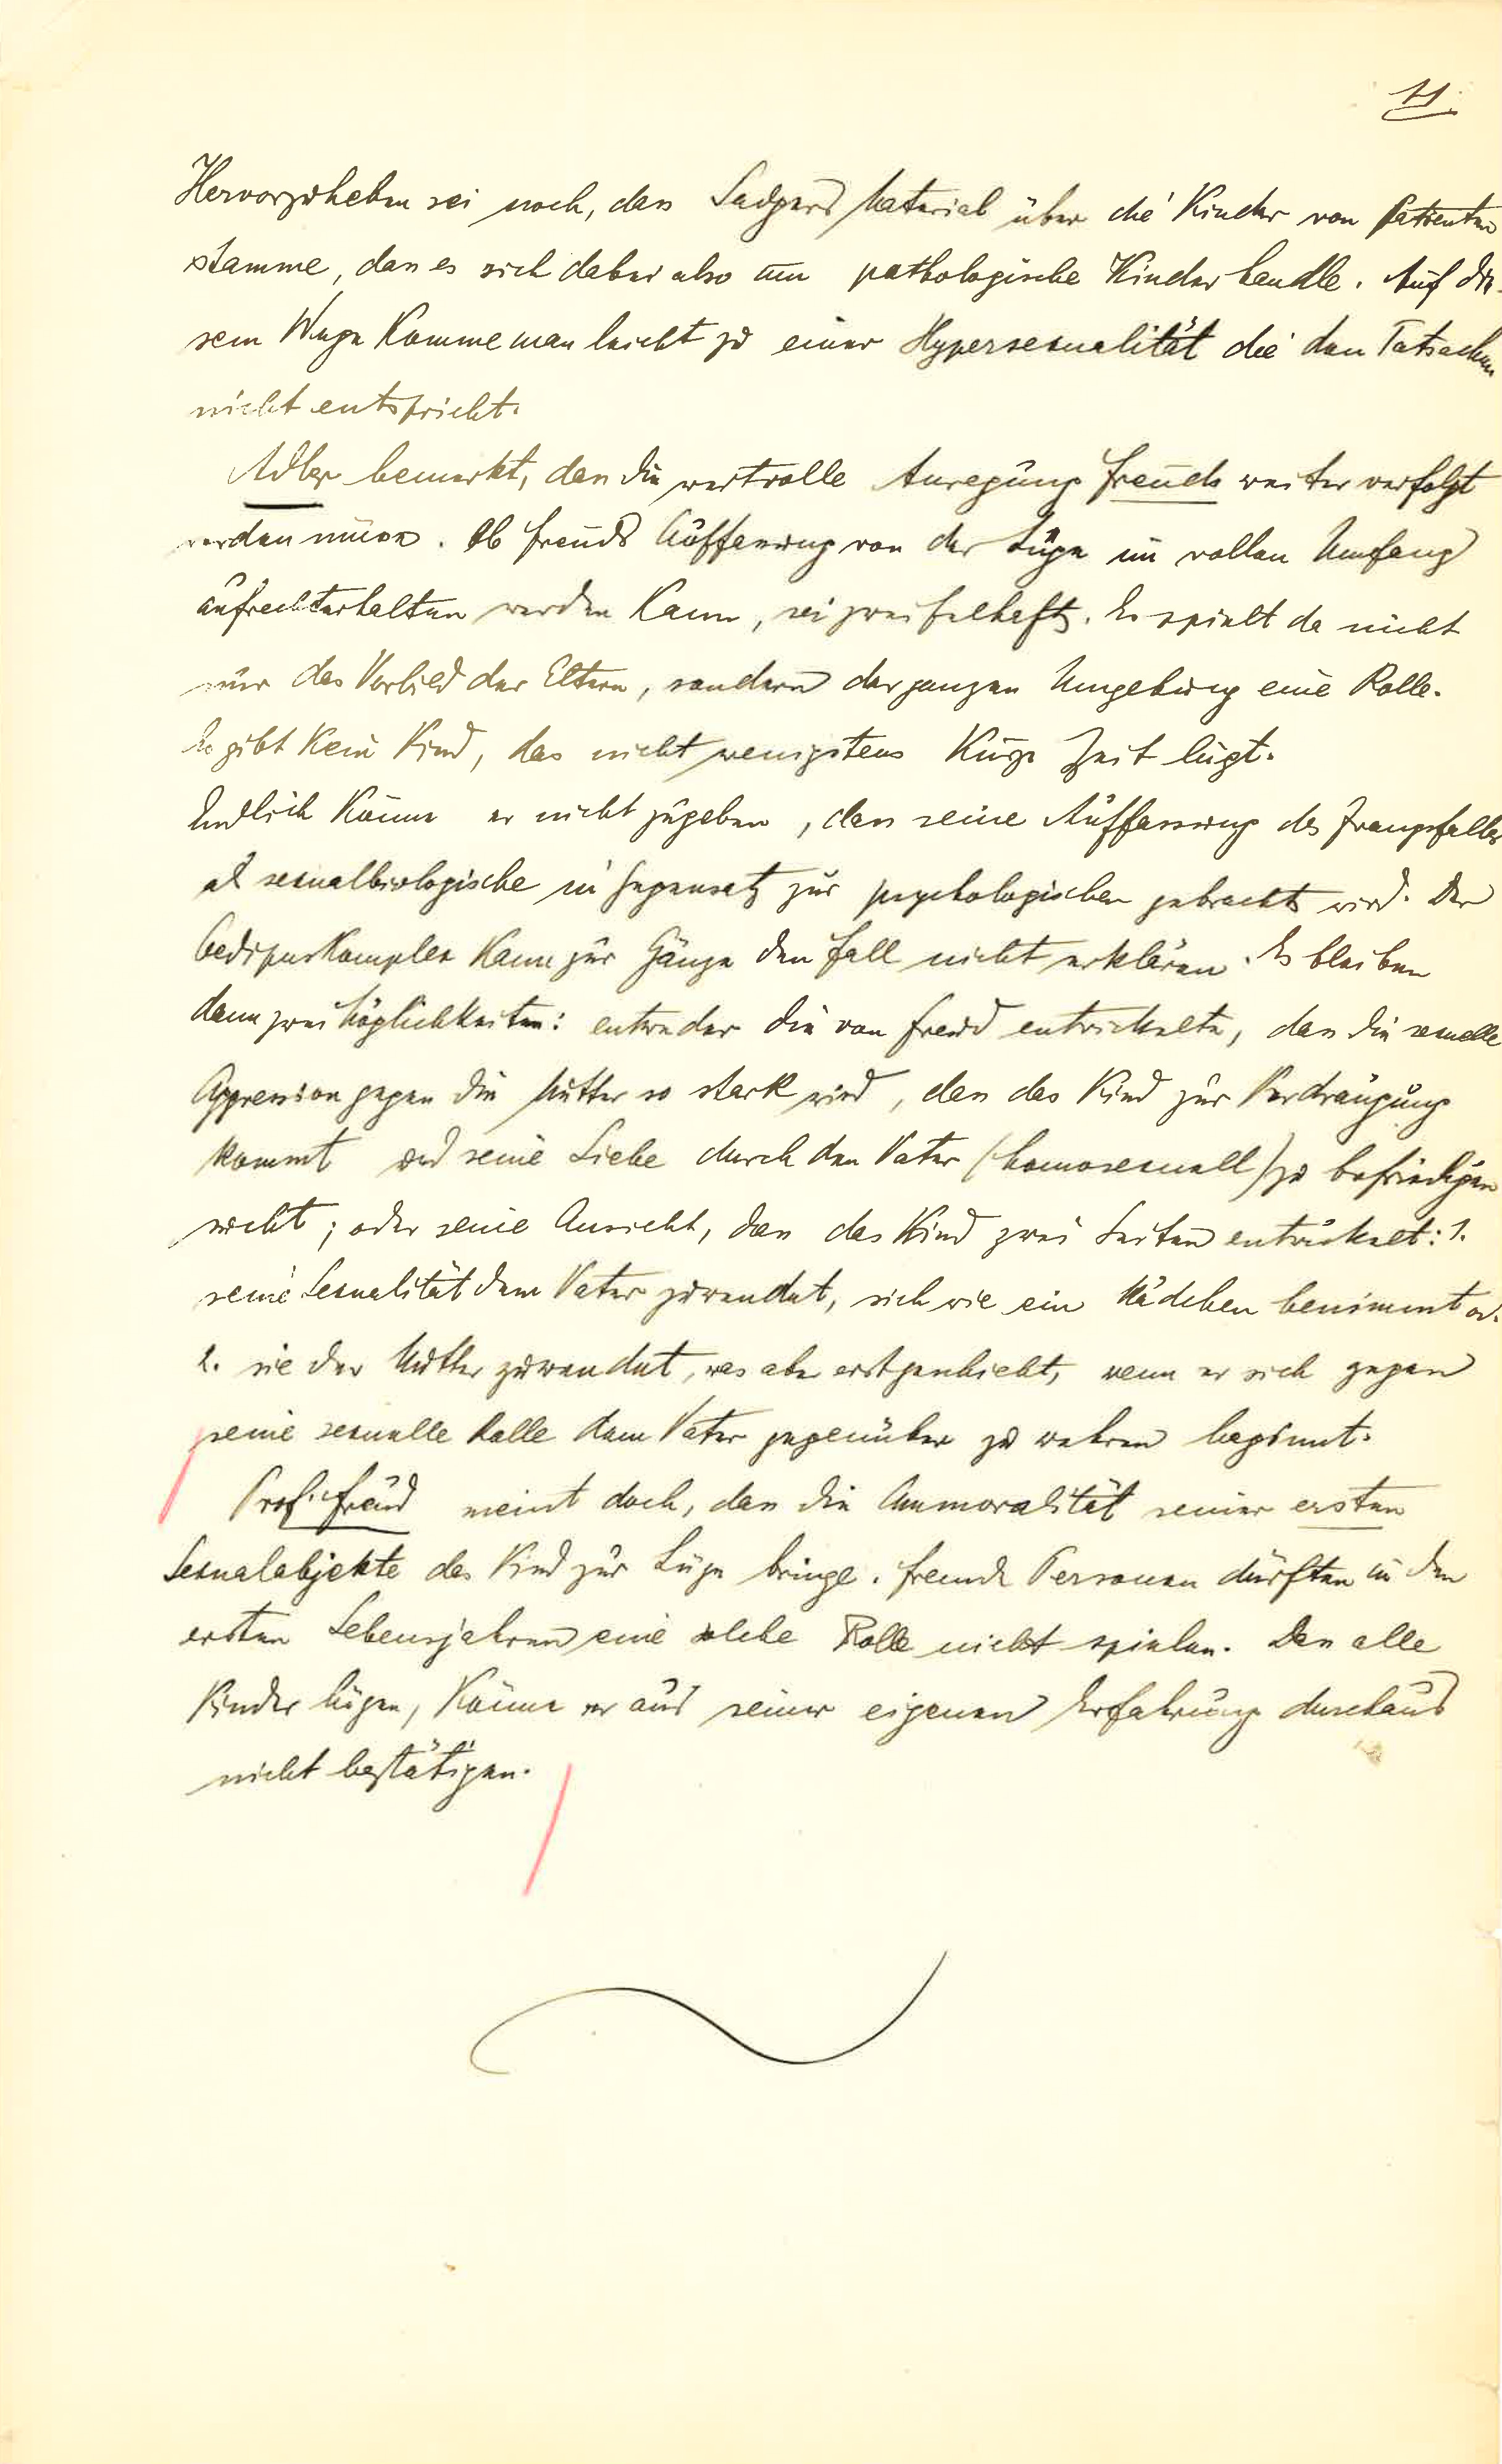 11.
Hervorzuheben sei noch, dass Sadgers Material über die Kinder von Patienten
stamme, dass es sich dabei also um pathologische Kinder handle. Auf die-
sem Wege komme man leicht zu einer Hypersexualität die den Tatsachen
nicht entspricht.
Adler bemerkt, dass die wertvolle Anregung Freuds weiter verfolgt
werden müsse. Ob Freuds Auffassung von der Lüge im vollen Umfang
aufrechterhalten werden kann, sei zweifelhaft. Es spielt da nicht
nur das Vorbild der Eltern, sondern der ganzen Umgebung eine Rolle.
Es gibt kein Kind, das nicht wenigstens kurze Zeit lügt.
Endlich könne er nicht zugeben, dass seine Auffassung des Zwangsfalles
als sexualbiologische in Gegensatz zur psychologischen gebracht wird. Der
Oedipuskomplex kann zur Gänze den Fall nicht erklären. Es bleiben
dann zwei Möglichkeiten: entweder die von Freud entwickelte, dass die sexuelle
Aggression gegen die Mutter so stark wird, dass das Kind zur Verdrängung
kommt und seine Liebe durch den Vater (homosexuell) zu befriedigen
sucht; oder seine Ansicht, dass das Kind zwei Seiten entwickelt: 1.
seine Sexualität dem Vater zuwendet, sich wie ein Mädchen benimmt od.
2. sie der Mutter zuwendet, was aber erst geschieht, wenn er sich gegen
seine sexuelle Rolle dem Vater gegenüber zu wehren beginnt.
Prof. Freud meint doch, dass die Ammoralität seiner ersten
Sexualobjekte das Kind zur Lüge bringe. Fremde Personen dürften in den
ersten Lebensjahren eine solche Rolle nicht spielen. Dass alle
Kinder lügen, könne er aus seiner eigenen Erfahrung durchaus
nicht bestätigen.